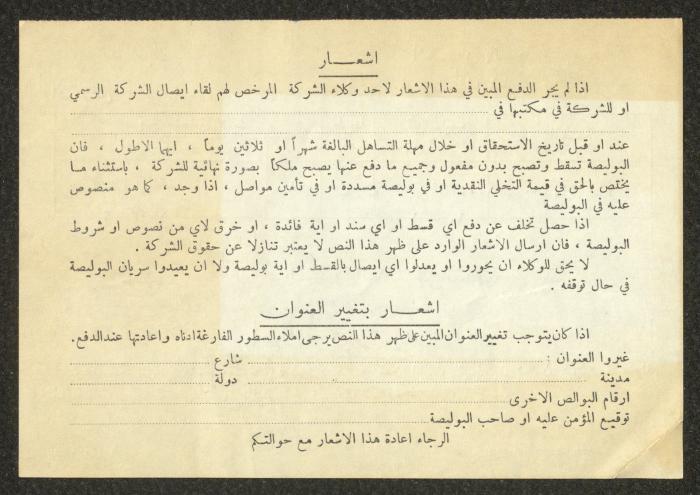 اشعــــار
اذا لم يجر الدفع المبين في هذا الاشعار لاحد وكلاء الشركة المرخص لهم لقاء ايصال الشركة الرسمي
او للشركة في مكتبها في
عند او قبل تاريخ الاستحقاق او خلال مهلة التساهل البالغة شهراً او ثلاثين يوماً ، ايهما الاطول ، فان
البوليصة تسقط وتصبح بدون مفعول وجميع ما دفع عنها يصبح ملكاً بصورة نهائية للشركة ، باستثناء مـا
يختص بالحق في قيمة التخلي النقدية او في بوليصة مسددة او في تأمين مواصل ، اذا وجد ، كما هو منصوص
عليه في البوليصة
اذا حصل تخلف عن دفع اي قسط او اي سند او اية فائدة ، او خرق لاي من نصوص او شروط
البوليصة ، فان ارسال الاشعار الوارد على ظهر هذا النص لا يعتبر تنازلا عن حقوق الشركة .
لا يحق للوكلاء ان يحوروا او يعدلوا اي ايصال بالقسط او اية بوليصة ولا ان يعيدوا سريان البوليصة
في حال توقفه .
اشعــار بتغيير العنوان
اذا كان يتوجب تغيير العنوان المبين على ظهر هذا النص يرجى املاء السطور الفارغة ادناه واعادتها عند الدفع.
غيروا العنوان : شارع
مدينة دولة
ارقام البوالص الاخرى
توقيع المؤمن عليه او صاحب البوليصة
الرجاء اعادة هذا الاشعار مع حوالتكم